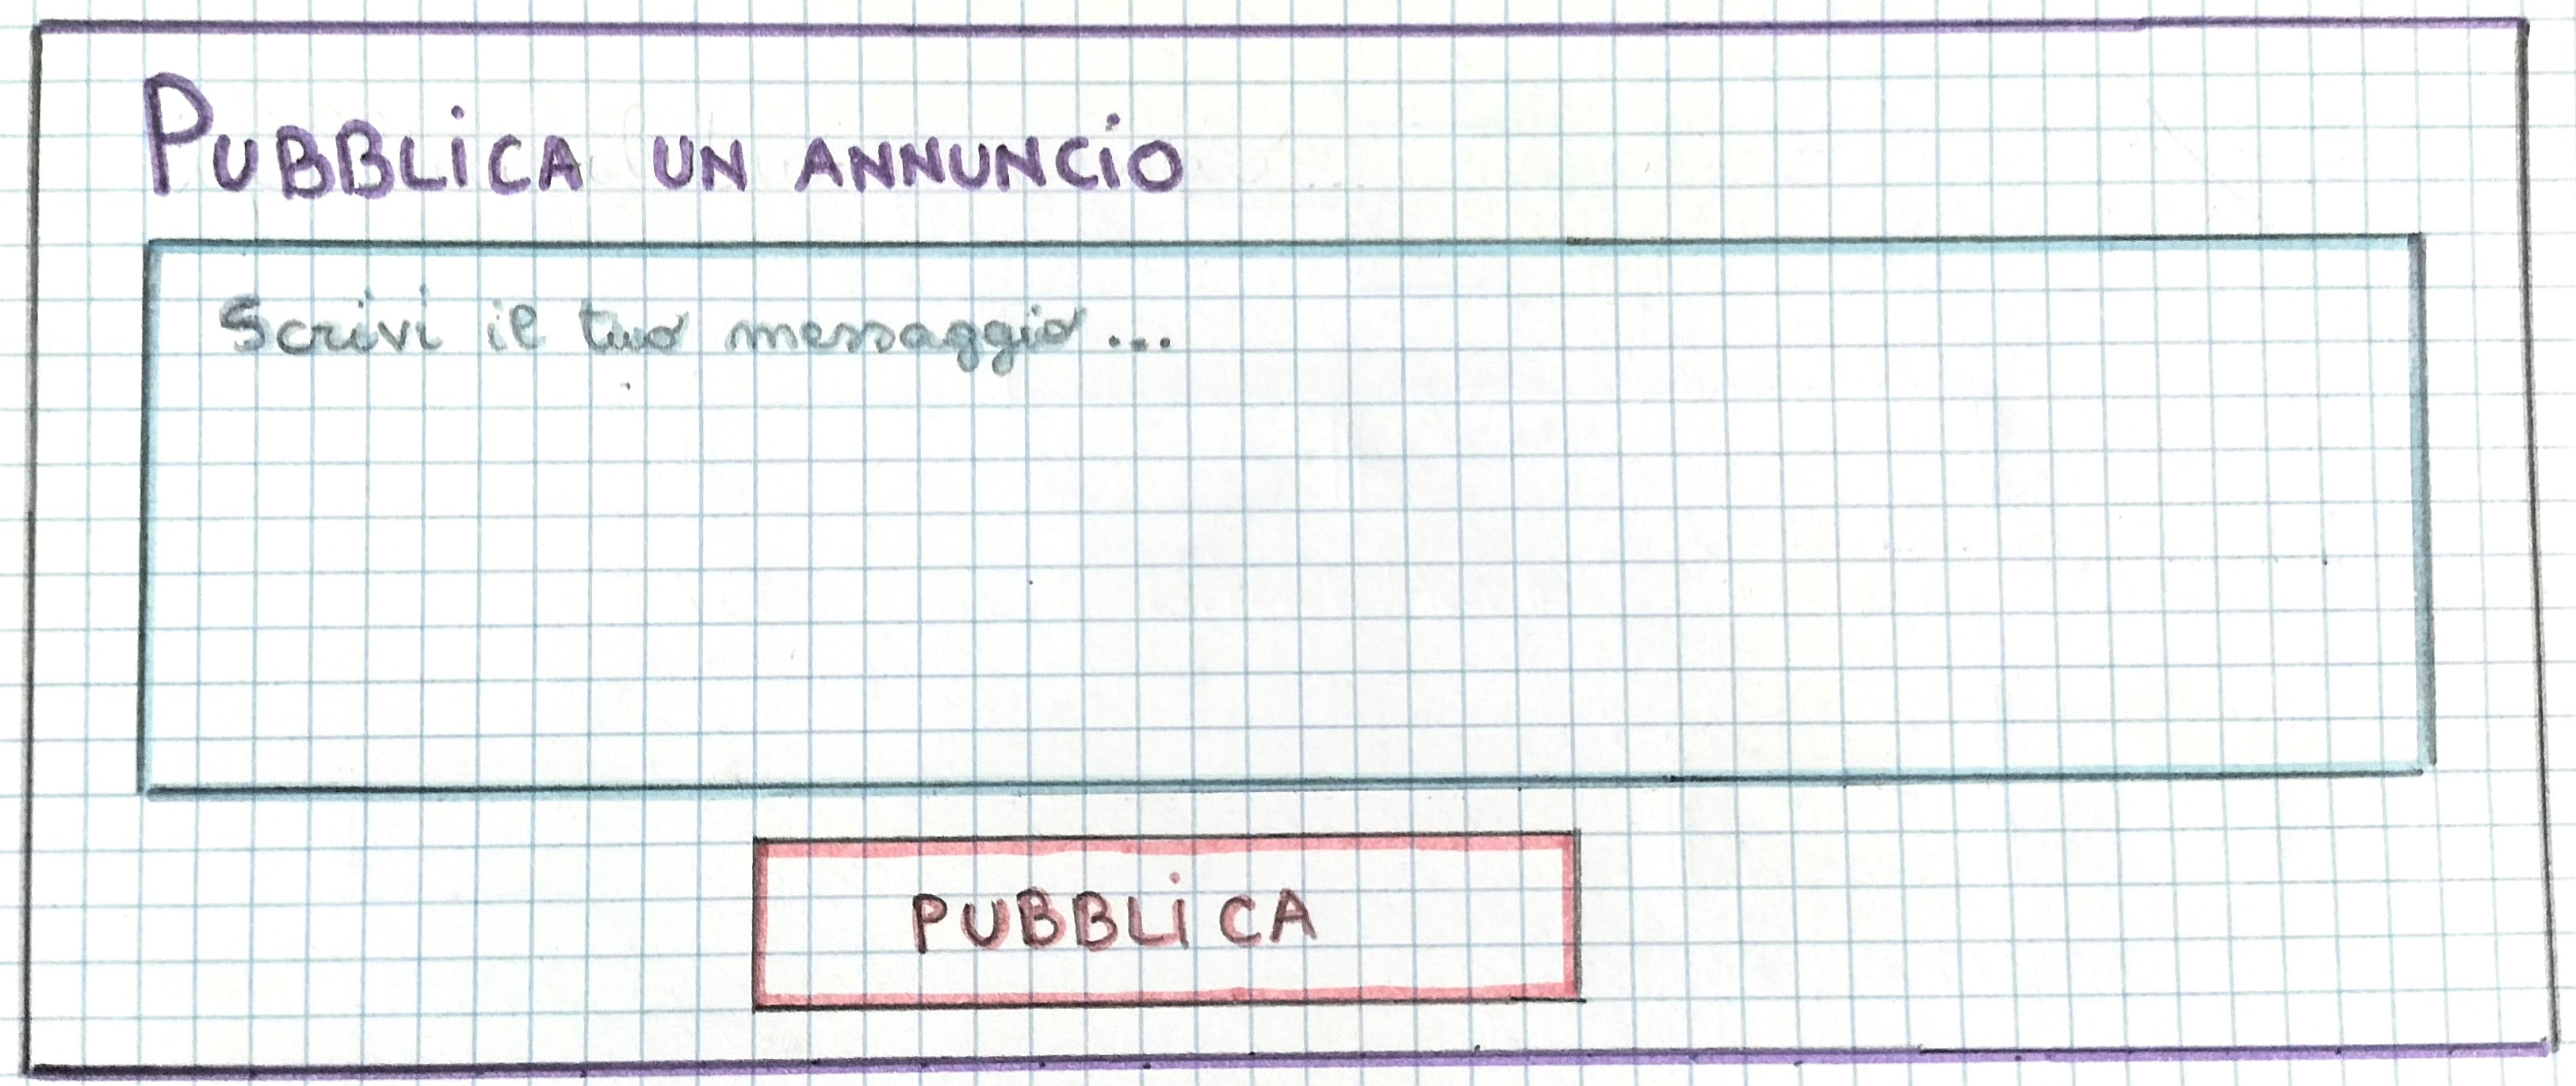 PUBBLICA UN ANNUNCIO
Scrivi il tuo messaggio...
PUBBLICA